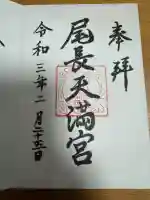 奉拝
尾長天満宮
令和三年二月二十五日